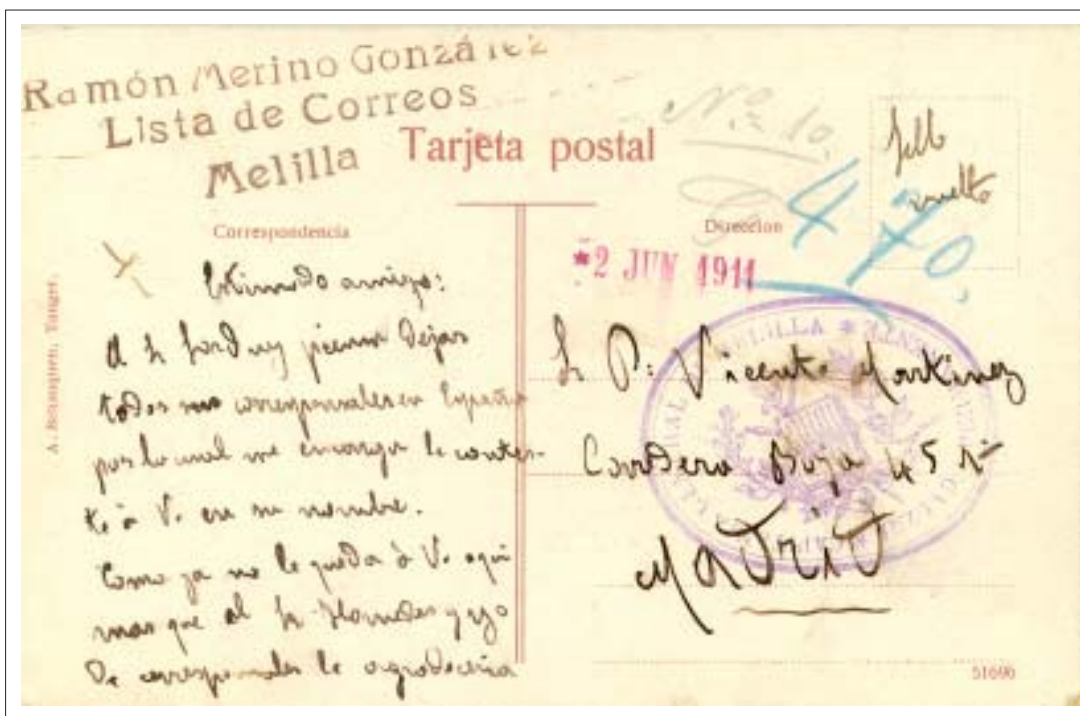 Ramón Merino González
Lista de Correos
Melilla
Tarjeta postal
Nº 10.
470.
Correspondencia
Direccion
*2 JUN 1911
A. Tanger.
Estimado amigo:
A Sr piensa dejar
todos sus corresponsales en España
por lo cual me encarga le contes-
te a V. en su nombre.
Como ya no le queda á V. aqui
mas que al Sr y yo
De corresponsales le agradeceria
MELILLA
Sr D: Vicente Martinez
Baja 45 1º
Madrid
51696